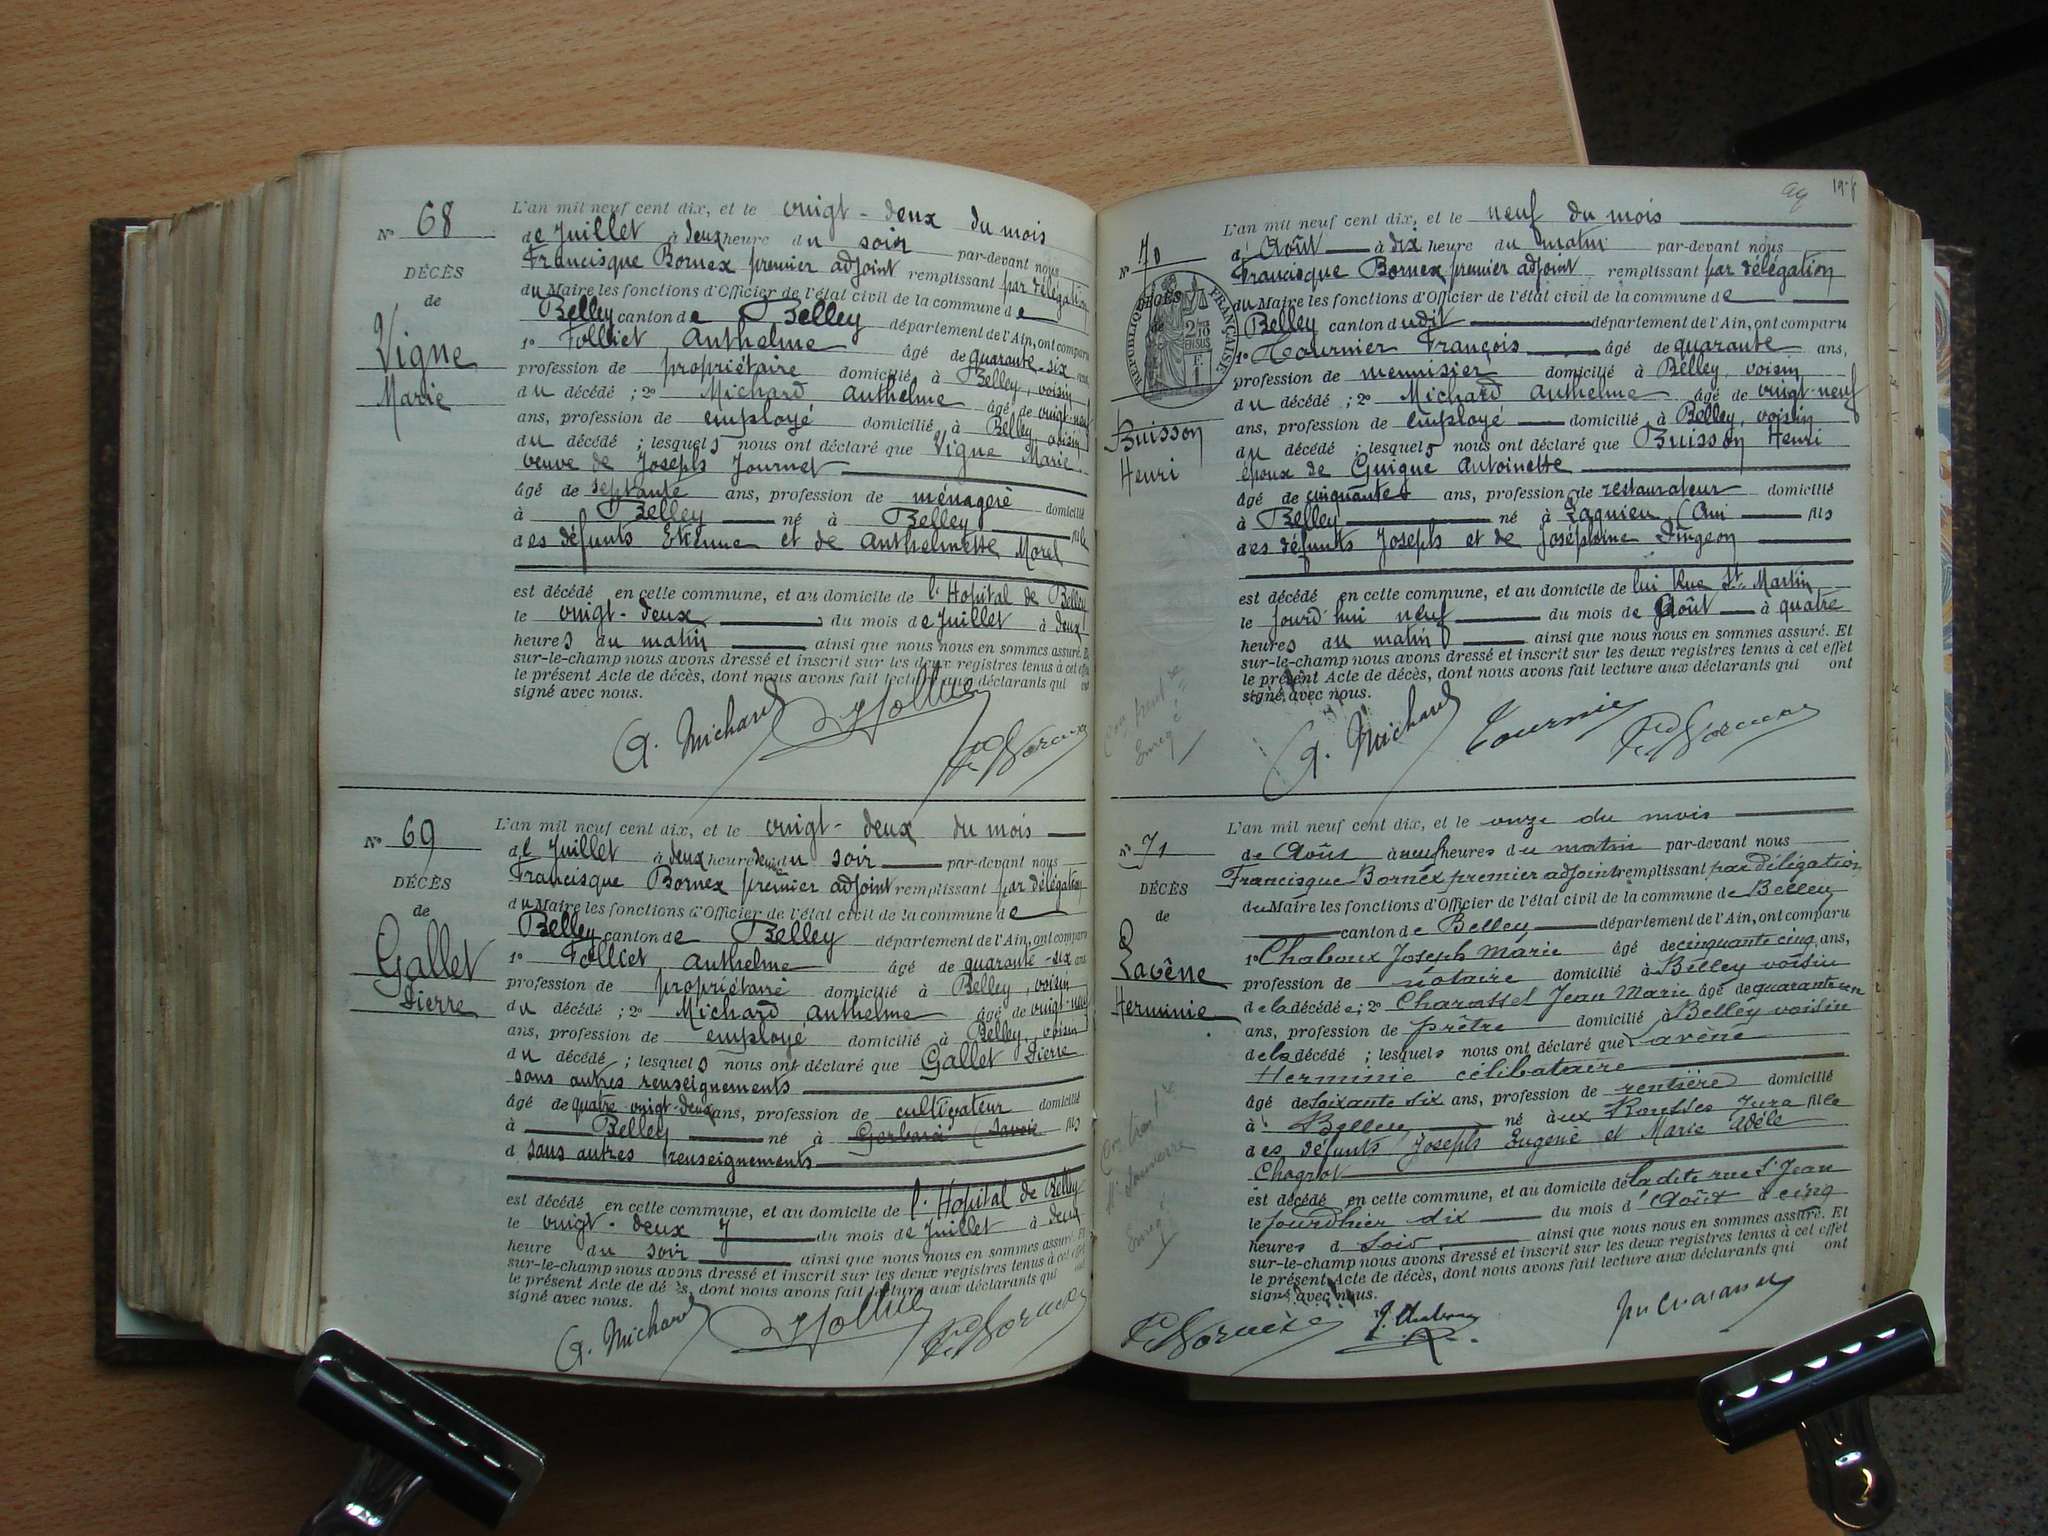 N° 68
DÉCÈS
de
Vigne
Marie
L'an mil neuf cent dix, et le vingt-deux du mois
de Juillet à deux heure du soir par-devant nous
Francisque Bornex premier adjoint remplissant par délégation
du Maire les fonctions d'Officier de l'état civil de la commune de
Belley canton de Belley département de l'Ain, ont comparu
1° Folliet Anthelme âgé de quarante-six ans,
profession de propriétaire domicilié à Belley, voisin
du décédé ; 2° Michard Anthelme âgé de vingt-neuf
ans, profession de employé domicilié à Belley, voisin
du décédé ; lesquels nous ont déclaré que Vigne Marie
veuve de Joseph Journet
âgé de septante ans, profession de ménagère domicilié
à Belley né à Belley fille
des défunts Etienne et de Anthelmette Morel
est décédé en cette commune, et au domicile de l'Hopital de Belley
le vingt-deux du mois de Juillet à deux
heures du matin ainsi que nous nous en sommes assuré. Et
sur-le-champ nous avons dressé et inscrit sur les deux registres tenus à cet effet
le présent Acte de décès, dont nous avons fait lecture aux déclarants qui ont
signé avec nous.
A. Michard Folliet Fd Bornex
N° 69
DÉCÈS
de
Gallet
Pierre
L'an mil neuf cent dix, et le vingt-deux du mois
de Juillet à deux heure du soir par-devant nous
Francisque Bornex premier adjoint remplissant par délégation
du Maire les fonctions d'Officier de l'état civil de la commune de
Belley canton de Belley département de l'Ain, ont comparu
1° Folliet Anthelme âgé de quarante-six ans
profession de propriétaire domicilié à Belley, voisin
du décédé ; 2° Michard Anthelme âgé de vingt-neuf
ans, profession de employé domicilié à Belley, voisin
du décédé ; lesquels nous ont déclaré que Gallet Pierre
sans autres renseignements
âgé de quatre vingt-deux ans, profession de cultivateur domicilié
à Belley né à Gerbaix (Savoie fils
d sans autres renseignements
est décédé en cette commune, et au domicile de l'Hopital de Belley
le vingt-deux du mois de Juillet à deux
heure du soir ainsi que nous nous en sommes assuré. Et
sur-le-champ nous avons dressé et inscrit sur les deux registres tenus à cet effet
le présent Acte de décès, dont nous avons fait lecture aux déclarants qui ont
signé avec nous.
A. Michard Folliet Fd Bornex
N° 70
DÉCÈS
de
RÉPUBLIQUE FRANÇAISE
Buisson
Henri
L'an mil neuf cent dix, et le neuf du mois
d'Août à dix heure du matin par-devant nous
Francisque Bornex premier adjoint remplissant par délégation
du Maire les fonctions d'Officier de l'état civil de la commune de
Belley canton dudit département de l'Ain, ont comparu
1° Tournier François âgé de quarante ans,
profession de menuisier domicilié à Belley, voisin
du décédé ; 2° Michard Anthelme âgé de vingt-neuf
ans, profession de employé domicilié à Belley, voisin
du décédé ; lesquels nous ont déclaré que Buisson Henri
époux de Guigue Antoinette
âgé de cinquante ans, profession de restaurateur domicilié
à Belley né à Lagnieu (Ain fils
des défunts Joseph et de Joséphine Dingeon
est décédé en cette commune, et au domicile de lui Rue St Martin
le jourd'hui neuf du mois de Août à quatre
heures du matin ainsi que nous nous en sommes assuré. Et
sur-le-champ nous avons dressé et inscrit sur les deux registres tenus à cet effet
le présent Acte de décès, dont nous avons fait lecture aux déclarants qui ont
signé avec nous.
A. Michard Tournier Fd Bornex
N° 71
DÉCÈS
de
Lavêne
Herminie
L'an mil neuf cent dix, et le onze du mois
de Août à neuf heures du matin par-devant nous
Francisque Bornex premier adjoint remplissant par délégation
du Maire les fonctions d'Officier de l'état civil de la commune de Belley
canton de Belley département de l'Ain, ont comparu
1° Chaboux Joseph Marie âgé de cinquante cinq ans,
profession de notaire domicilié à Belley voisin
de la décédée ; 2° Charasset Jean Marie âgé de quarante un
ans, profession de prêtre domicilié à Belley voisin
de la décédé ; lesquels nous ont déclaré que Lavêne
Herminie célibataire
âgé de soixante six ans, profession de rentière domicilié
à Belley né aux Rousses Jura fille
des défunts Joseph Eugene et Marie Adéle
est décédé en cette commune, et au domicile de la dite rue St Jean
le jourd'hier dix du mois d'Août à cinq
heures d soir ainsi que nous nous en sommes assuré. Et
sur-le-champ nous avons dressé et inscrit sur les deux registres tenus à cet effet
le présent Acte de décès, dont nous avons fait lecture aux déclarants qui ont
signé avec nous.
Fd Bornex